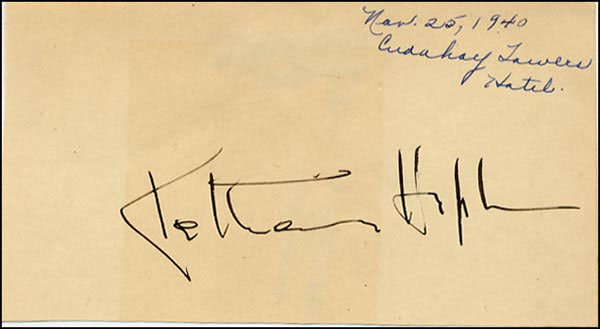 Nov. 25, 1940
Cudahay Towers
Hotel.
Katharine Hepburn